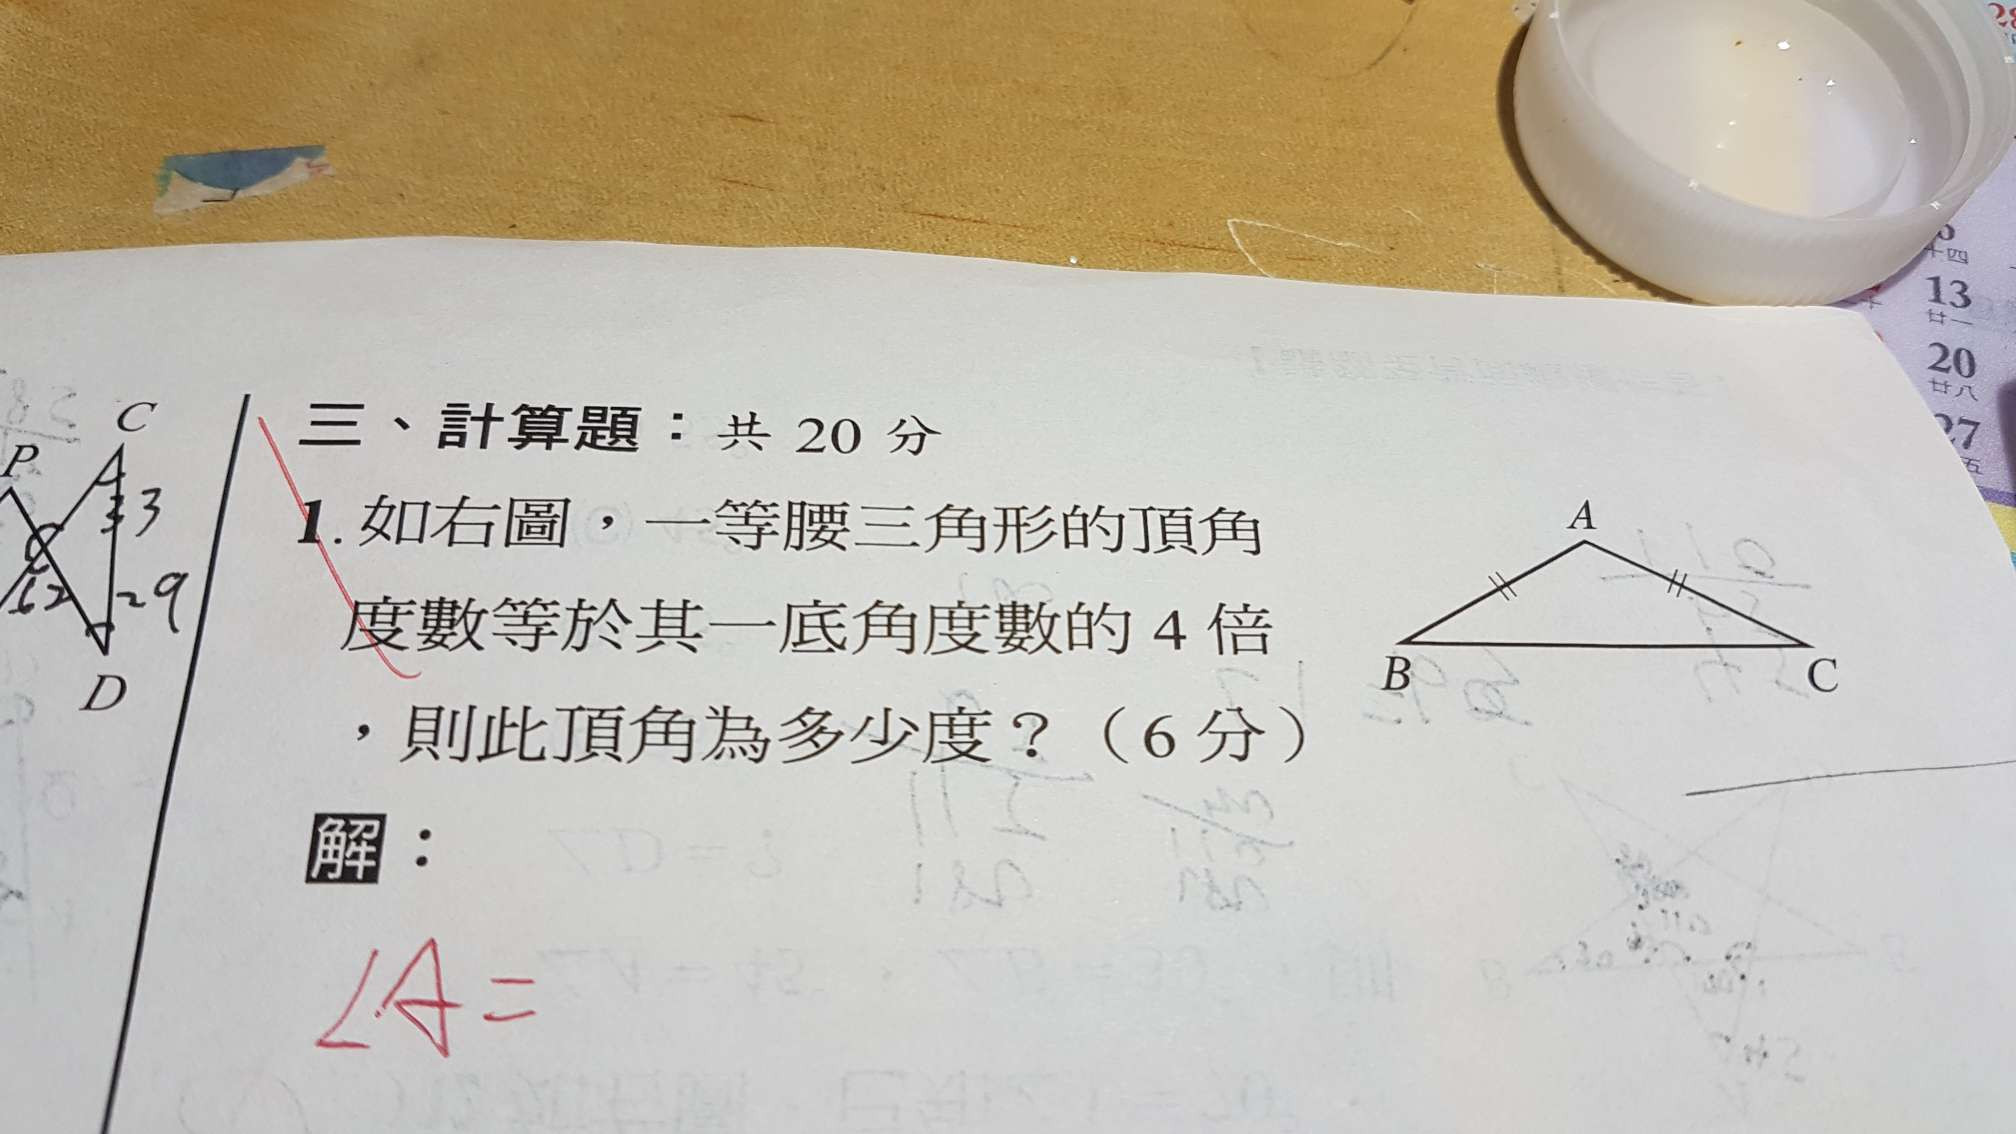 三、計算題：共 20 分
1. 如右圖，一等腰三角形的頂角
度數等於其一底角度數的 4 倍
，則此頂角為多少度？（6 分）
A
B
C
解：
∠A =
C
P
33
62
29
D
十四
13
廿一
20
廿八
27
五